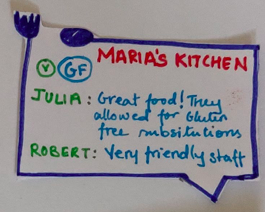 MARIA'S KITCHEN
V GF
JULIA: Great food! They
allowed for Gluten
free substitutions
ROBERT: Very friendly staff